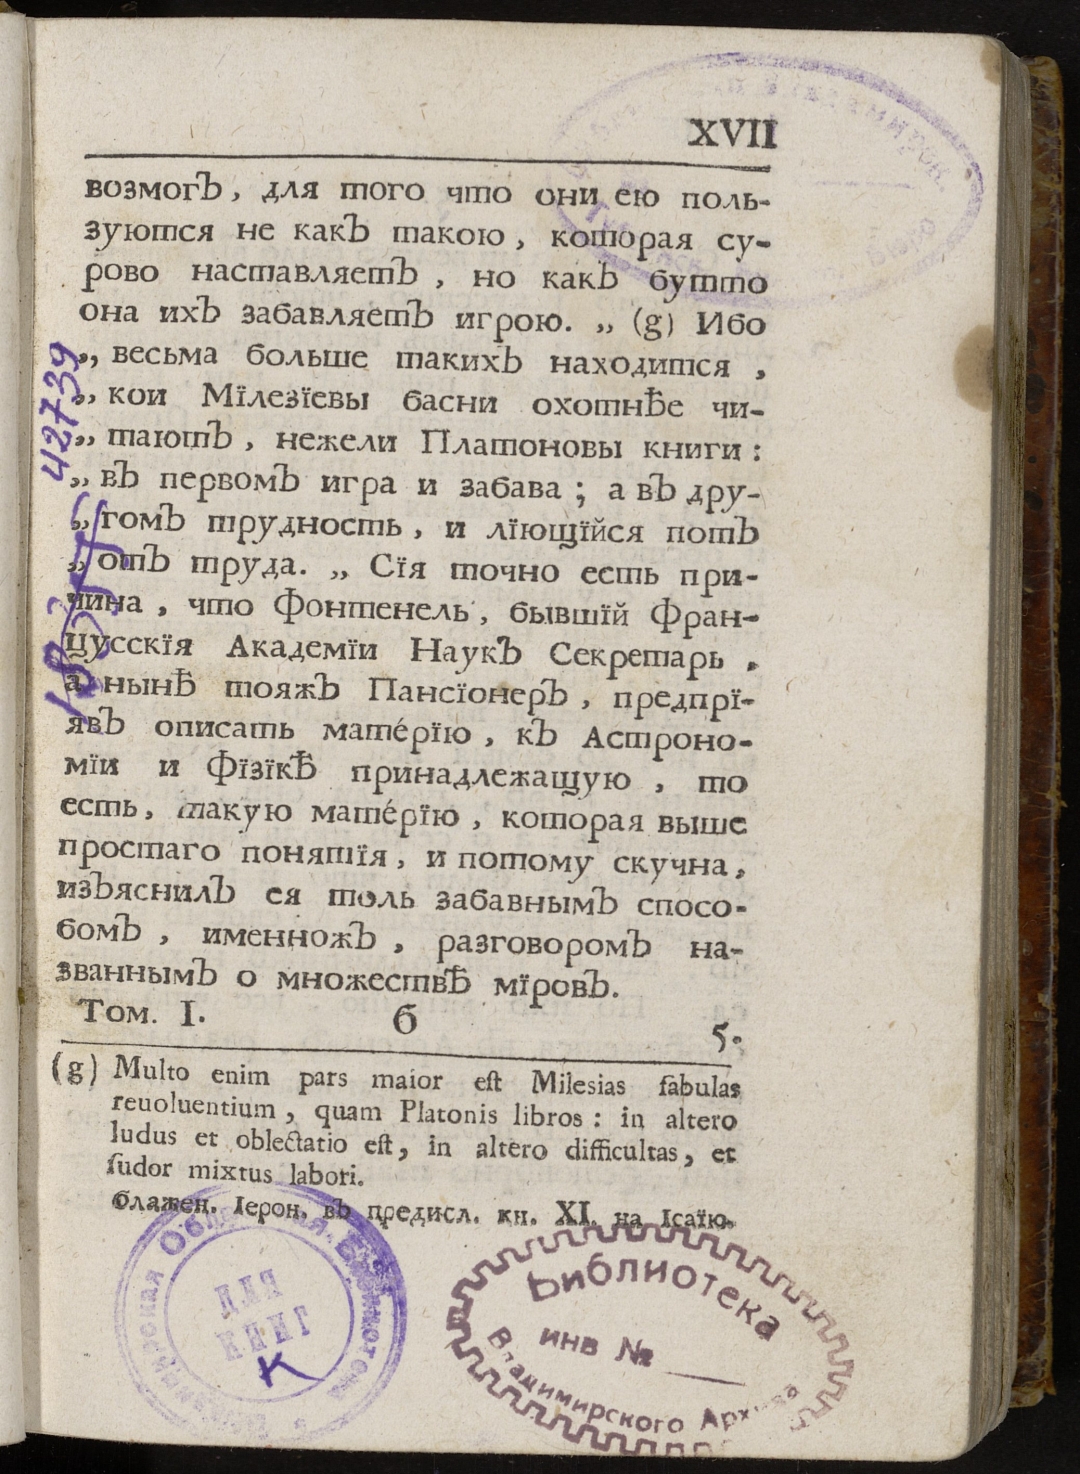 XVII
возмогЪ, для того что они ею поль-
зуются не какЪ такою, которая су-
рово наставляетЪ, но какЪ бутто
она ихЪ забавляетЪ игрою. „ (g) Ибо
„ весьма больше такихЪ находится,
„ кои Мїлезїевы басни охотнѣе чи-
„ таютЪ, нежели Платоновы книги:
„ вЪ первомЪ игра и забава; а вЪ дру-
„ гомЪ трудность, и лїющїйся потЪ
„ отЪ труда. „ Сїя точно есть при-
чина, что Фонтенель, бывшїй Фран-
цусскїя Академїи НаукЪ Секретарь,
а нынѣ тояжЪ ПансїонерЪ, предпрї-
явЪ описать мате́рїю, кЪ Астроно-
мїи и Фїзїкѣ принадлежащую, то
есть, такую мате́рїю, которая выше
простаго понятїя, и потому скучна,
изЪяснилЪ ея толь забавнымЪ спосо-
бомЪ, именножЪ, разговоромЪ на-
званнымЪ о множествѣ мїровЪ.
Том. I. б 5.
(g) Multo enim pars maior eſt Milesias fabulas
reuoluentium, quam Platonis libros: in altero
ludus et oblectatio eſt, in altero difficultas, et
ſudor mixtus labori.
блажен. Іерон. вЪ предисл. кн. XI. на Ісаїю.
42739
Для
книг
К
Библиотека
инв №
Владимирского